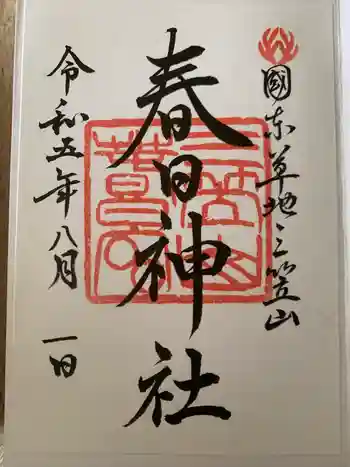 國東草地三笠山
春日神社
令和五年八月一日